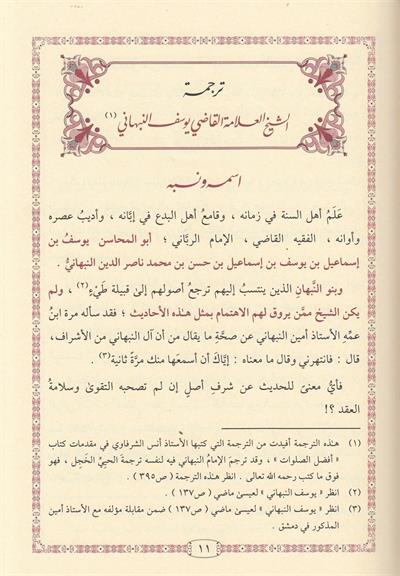 ترجمة
الشيخ العلامة القاضي يوسف النبهاني (١)
اسمه ونسبه
عَلَمُ أهل السنة في زمانه ، وقامعُ أهل البدع في إبَّانه ، وأديبُ عصره
وأوانه ، الفقيه القاضي ، الإمام الربَّاني ؛ أبو المحاسن يوسفُ بن
إسماعيل بن يوسف بن إسماعيل بن حسن بن محمد ناصر الدين النبهانيُّ .
وبنو النَّبهانِ الذين ينتسبُ إليهم ترجعُ أصولهم إلىٰ قبيلة طَيْءٍ(٢) ، ولم
يكن الشيخ ممَّن يروق لهم الاهتمام بمثل هذه الأحاديث ؛ فقد سأله مرة ابنُ
عمِّهِ الأستاذ أمين النبهاني عن صحَّةِ ما يقال من أن آل النبهاني من الأشراف،
قال : فانتهرني وقال ما معناه : إيَّاكَ أن أسمعَها منك مرَّةً ثانية(٣) .
فأيُّ معنىً للحديث عن شرفِ أصلٍ إن لم تصحبه التقوىٰ وسلامةُ
العقد ؟!
(١) هٰذه الترجمة أفيدت من الترجمة التي كتبها الأستاذ أنس الشرفاوي في مقدمات كتاب
« أفضل الصلوات » ، وقد ترجم الإمامُ النبهاني فيه لنفسه ترجمةَ الحييِّ الخَجِل ، فهو
فوق ما كتب رحمه الله تعالى . انظر هٰذه الترجمة ( ص٣٩٥ ) .
(٢) انظر « يوسف النبهاني » لعيسىٰ ماضي ( ص١٣٧ ) .
(٣) انظر « يوسف النبهاني » لعيسىٰ ماضي ( ص١٣٧ ) ضمن مقابلة مؤلفه مع الأستاذ أمين
المذكور في دمشق .
١١